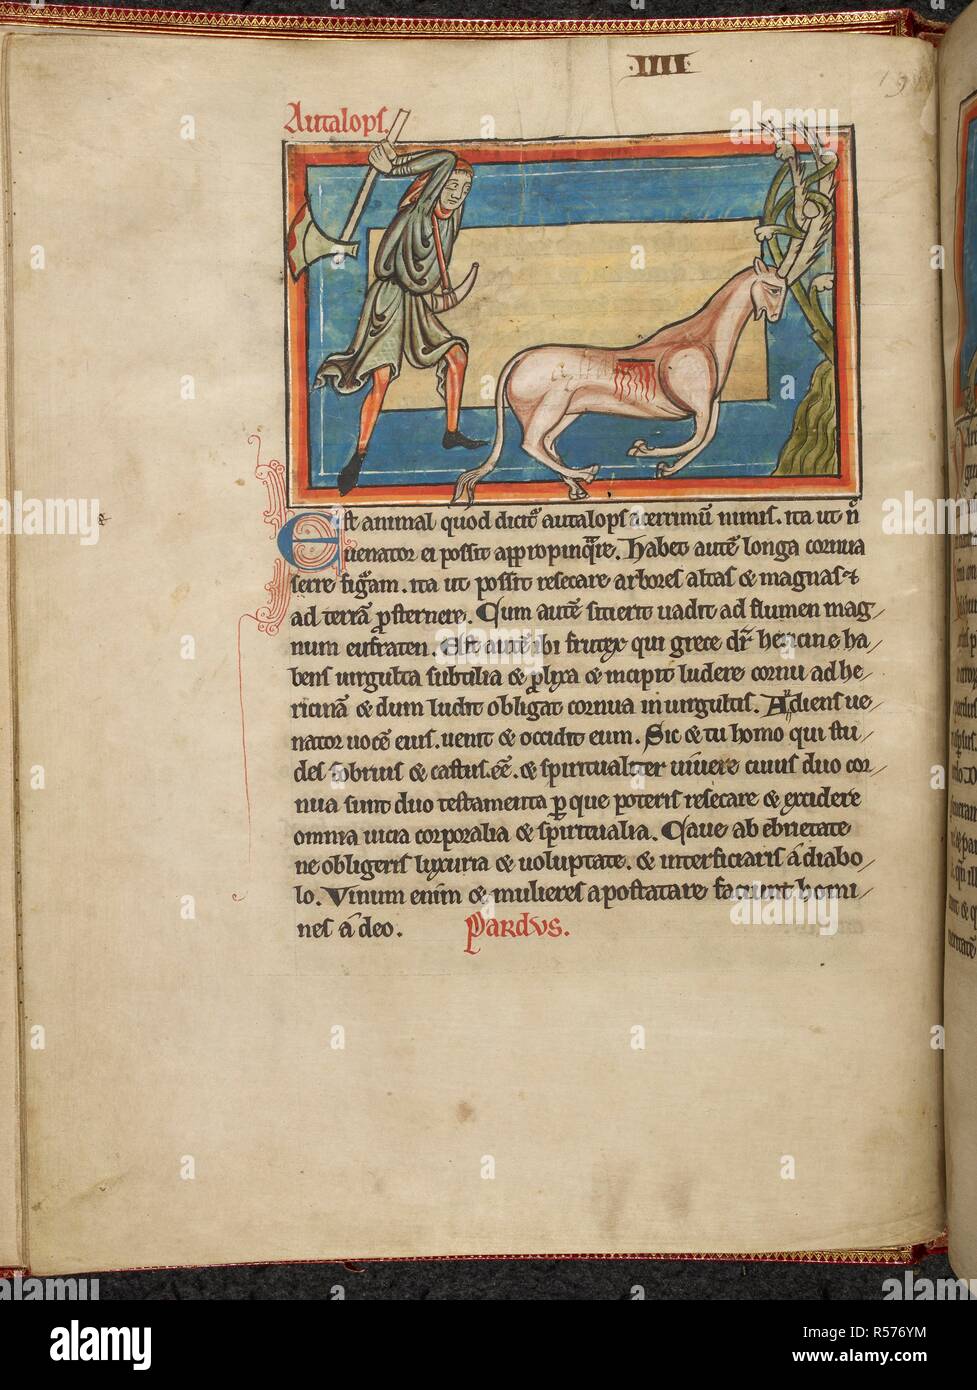 ·IIII·
19
Autalops.
Est animal quod dicit᷑ autalops acerrimū nimis. ita ut n̄
uenator ei possit appropinq̄re. Habet autē longa cornua
serre figᷓam. ita ut possit resecare arbores altas & magnas ⁊
ad terrā p̄sternere. Cum autē sitierit uadit ad flumen mag/
num eufraten. Est autē ibi frutex qui grece dr̄ hericine ha/
bens uirgulta subtilia & ꝓlixa & incipit ludere cornu ad he/
ricinā & dum ludit obligat cornua in uirgultis. Audiens ue/
nator uocē eius. uenit & occidit eum. Sic & tu homo qui stu/
des sobrius & castus. eē. & spiritualiter uiuere cuius duo cor/
nua sunt duo testamenta ꝑ que poteris resecare & excidere
omnia uicia corporalia & spiritualia. Caue ab ebrietate
ne obligeris luxuria & uoluptate. & interficiaris a diabo/
lo. Vinum enim & mulieres apostatare faciunt homi/
nes a deo. Pardus.
alamy
Image ID: R576YM
www.alamy.com